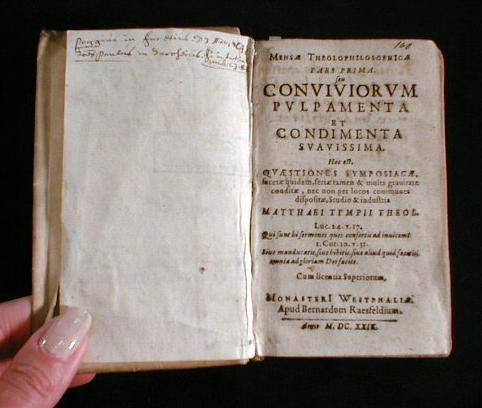 160
MENSÆ THEOLOPHILOSOPHICÆ
PARS PRIMA.
seu
CONVIVIORVM
PVLPAMENTA
ET
CONDIMENTA
SVAVISSIMA.
Hoc est,
QVÆSTIONES SYMPOSIACÆ,
facetæ quidem, seriæ tamen & multa gravitate
conditæ, nec non per locos communes
dispositæ, Studio & industria
MATTHAEI TYMPII THEOL.
Luc. 24. v. 17.
Qui sunt hi sermones quos confertis ad invicem?
1. Cor. 10. v. 31.
Sive manducatis, sive bibitis, sive aliud quid facitis,
omnia ad gloriam Dei facite.
Cum licentia Superiorum,
MONASTERI WESTPHALIÆ
Apud Bernardum Raesfeldium.
Anno M. DC. XXIX.